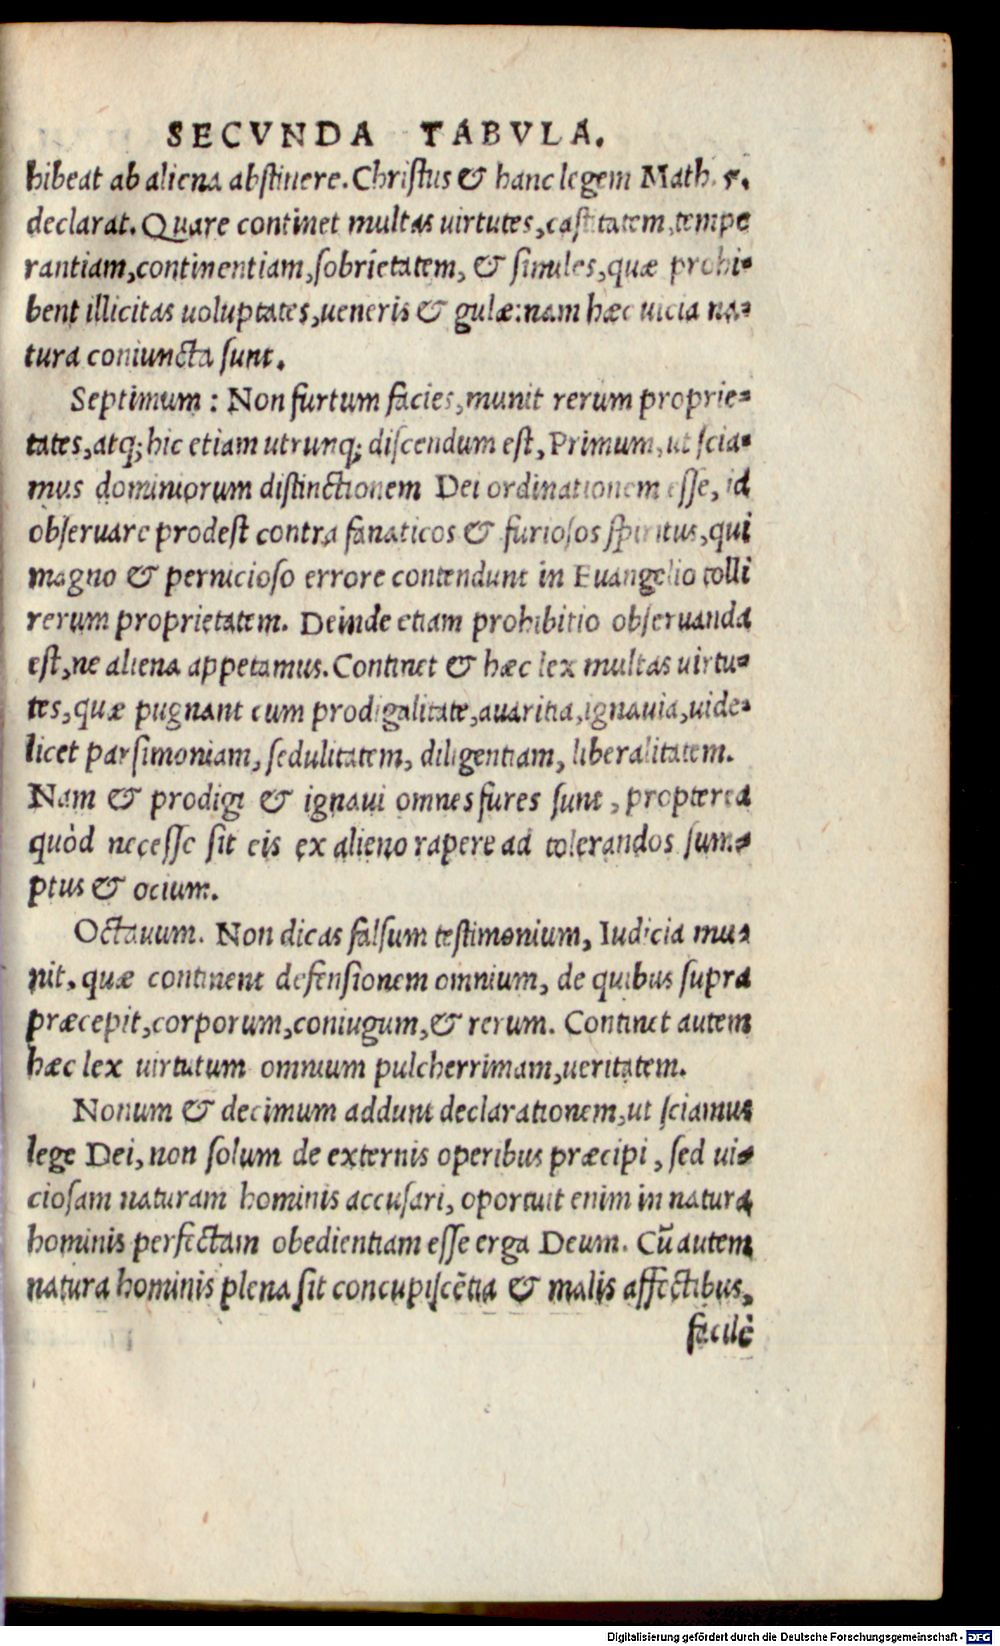 SECVNDA TABVLA.
hibeat ab aliena abſtinere. Chriſtus & hanc legem Math. 5.
declarat. Quare continet multas uirtutes, caſtitatem, tempe
rantiam, continentiam, ſobrietatem, & ſimiles, quæ prohi-
bent illicitas uoluptates, ueneris & gulæ: nam hæc uicia na-
tura coniuncta ſunt.
Septimum : Non furtum facies, munit rerum proprie-
tates, atq; hic etiam utrunq; diſcendum eſt, Primum, ut ſcia-
mus dominiorum diſtinctionem Dei ordinationem eſſe, id
obſeruare prodeſt contra fanaticos & furioſos ſpiritus, qui
magno & pernicioſo errore contendunt in Euangelio tolli
rerum proprietatem. Deinde etiam prohibitio obſeruanda
eſt, ne aliena appetamus. Continet & hæc lex multas uirtu-
tes, quæ pugnant cum prodigalitate, auaritia, ignauia, uide-
licet parſimoniam, ſedulitatem, diligentiam, liberalitatem.
Nam & prodigi & ignaui omnes fures ſunt, propterea
quòd neceſſe ſit eis ex alieno rapere ad tolerandos ſum-
ptus & ocium.
Octauum. Non dicas falſum teſtimonium, Iudicia mu-
nit, quæ continent defenſionem omnium, de quibus ſupra
præcepit, corporum, coniugum, & rerum. Continet autem
hæc lex uirtutum omnium pulcherrimam, ueritatem.
Nonum & decimum addunt declarationem, ut ſciamus
lege Dei, non ſolum de externis operibus præcipi, ſed ui-
cioſam naturam hominis accuſari, oportuit enim in natura
hominis perfectam obedientiam eſſe erga Deum. Cū autem
natura hominis plena ſit concupiſcētia & malis affectibus,
facilè
Digitalisierung gefördert durch die Deutsche Forschungsgemeinschaft - DFG